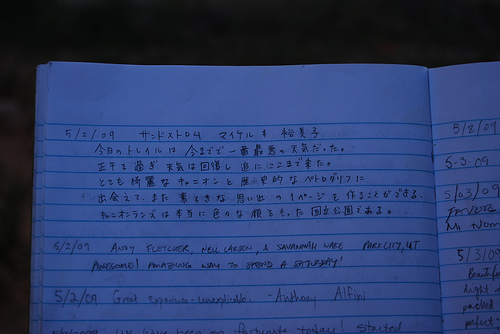 5/2/09 サンドストロム マイケル & 裕美子
今日のトレイルは 今までで 一番最悪の天気だった。
正午を過ぎ 天気は回復し 遂にここまで来た。
とても 綺麗なキャニオンと 歴史的な ペトログリフに
出会えて、また 素敵な 思い出の 1ページを 作ることができる。
キャニオンランズは 本当に 色々な 顔をもった 国立公園である。
5/2/09 ANDY FLETCHER, NEIL LARSEN, & SAVANNAH WAKE PARK CITY, UT
AWESOME! AMAZING WAY TO SPEND A SATURDAY!
5/2/09 Great experience - unexplicable. - Anthony Alfini
so fortunate today! started
5/2/09
5-3-09
5/03/09
FAVORITE
My Nom
5/3/09
Beautiful
light
packed